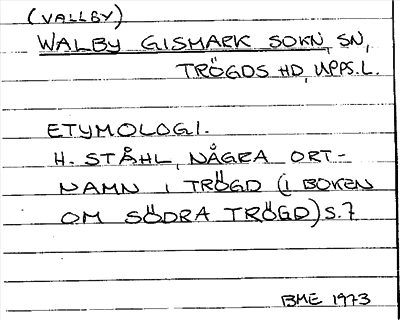 (VALLBY)
WALBY GISMARK SOKN, SN,
TRÖGDS HD, UPPS.L.
ETYMOLOGI.
H. STÅHL, NÅGRA ORT-
NAMN I TRÖGD (I BOKEN
OM SÖDRA TRÖGD) S.7
BME 1973